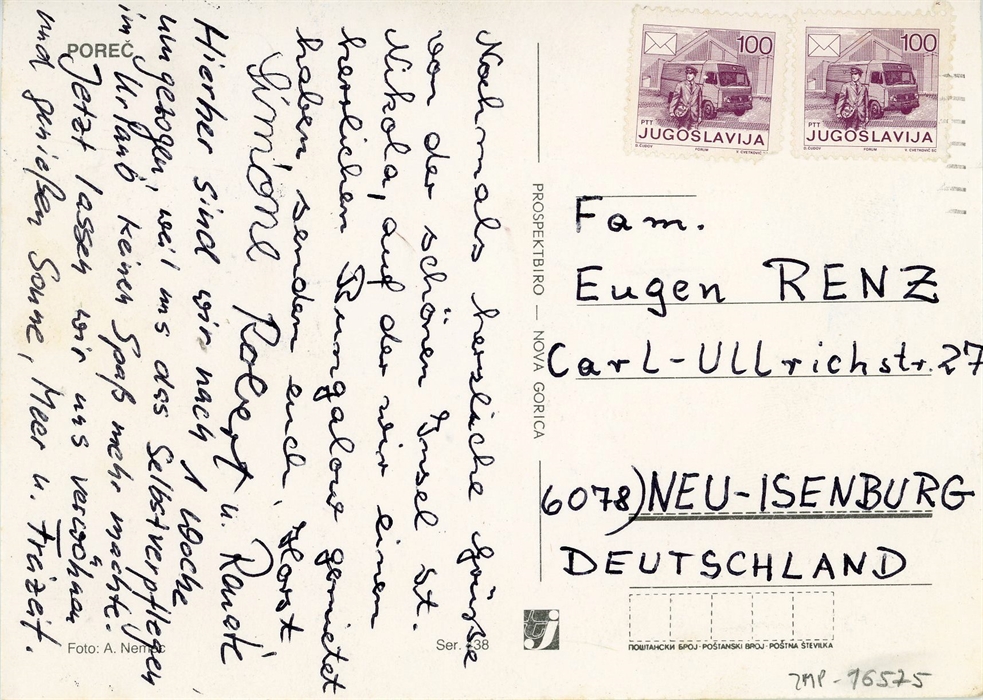 POREČ
Nochmals herzliche Grüsse
von der schönen Insel St.
Nikola, auf der wir einen
herrlichen Bungalow gemietet
haben senden euch, Horst
Simone Robert u. Renate
Hierher sind wir nach 1 Woche
umgezogen, weil uns das Selbstverpflegen
im Urlaub keinen Spaß mehr machte.
Jetzt lassen wir uns verwöhnen
und genießen Sonne, Meer u. Freizeit.
Foto: A. Nemec
Ser. 38
PROSPEKTBIRO — NOVA GORICA
100
PTT
JUGOSLAVIJA
100
PTT
JUGOSLAVIJA
Fam.
Eugen RENZ
Carl-Ullrichstr. 27
6078) NEU-ISENBURG
DEUTSCHLAND
ПОШТАНСКИ БРОЈ · POŠTANSKI BROJ · POŠTNA ŠTEVILKA
ZMP-16575